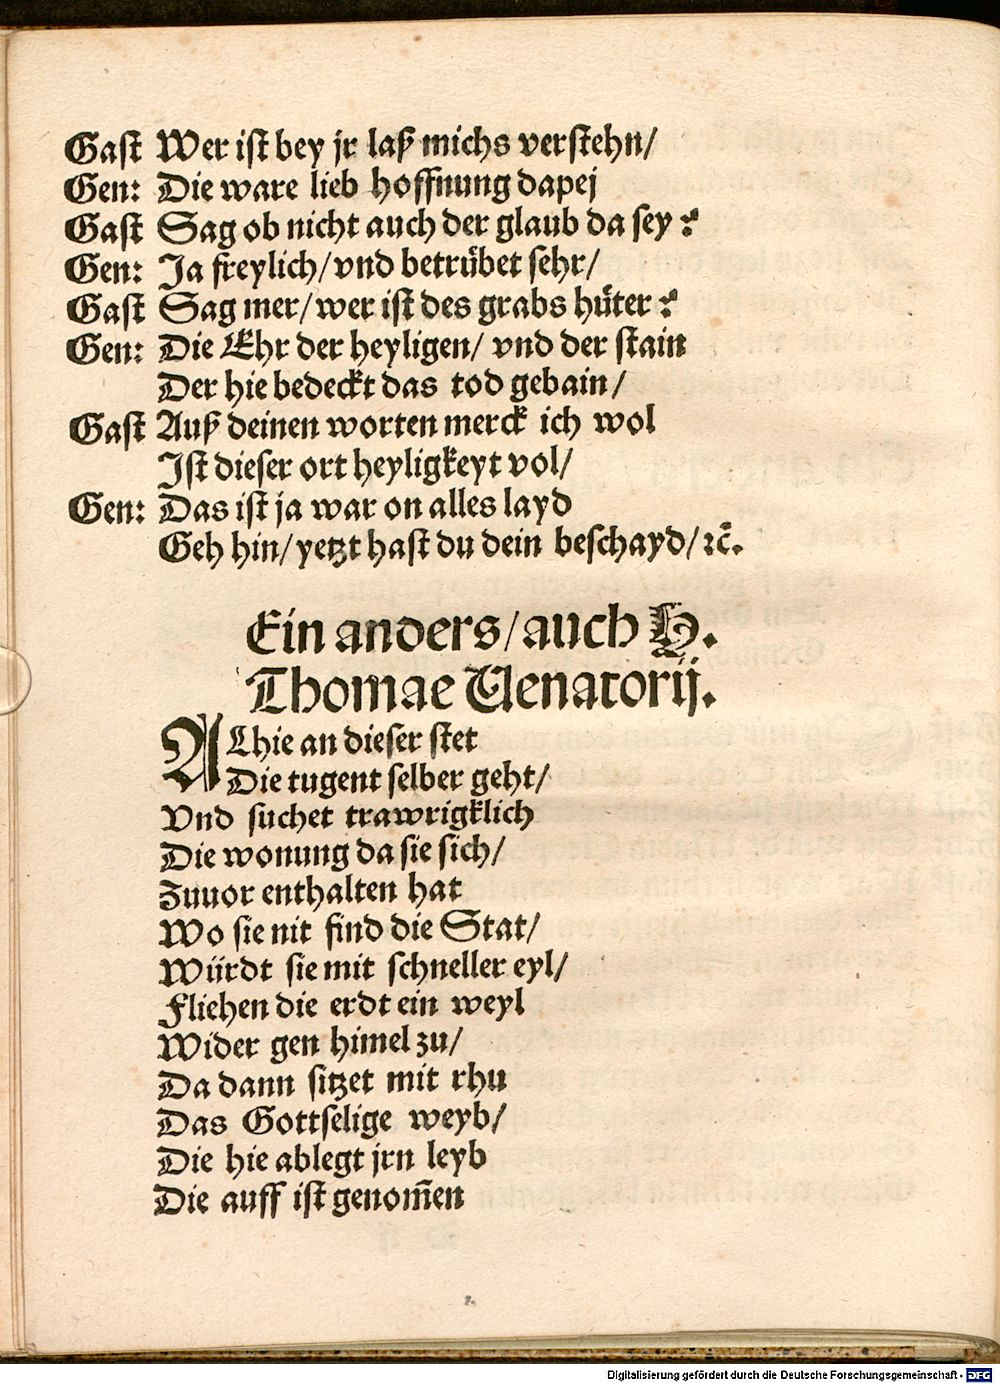 Gast Wer ist bey jr laß michs verstehn/
Gen: Die ware lieb hoffnung dapej
Gast Sag ob nicht auch der glaub da sey?
Gen: Ja freylich/vnd betrübet sehr/
Gast Sag mer/wer ist des grabs hüter?
Gen: Die Ehr der heyligen/ vnd der stain
Der hie bedeckt das tod gebain/
Gast Auß deinen worten merck ich wol
Ist dieser ort heyligkeyt vol/
Gen: Das ist ja war on alles layd
Geh hin/yetzt hast du dein beschayd/ꝛc̃.
Ein anders/auch H.
Thomae Venatorij.
ALhie an dieser stet
Die tugent selber geht/
Vnd suchet trawrigklich
Die wonung da sie sich/
Zuuor enthalten hat
Wo sie nit find die Stat/
Würdt sie mit schneller eyl/
Fliehen die erdt ein weyl
Wider gen himel zu/
Da dann sitzet mit rhu
Das Gottselige weyb/
Die hie ablegt jrn leyb
Die auff ist genom̃en
Digitalisierung gefördert durch die Deutsche Forschungsgemeinschaft - DFG